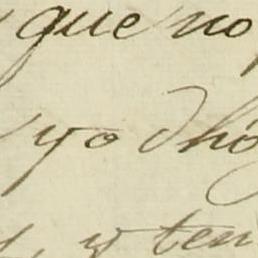 que no
yo dho
y ten